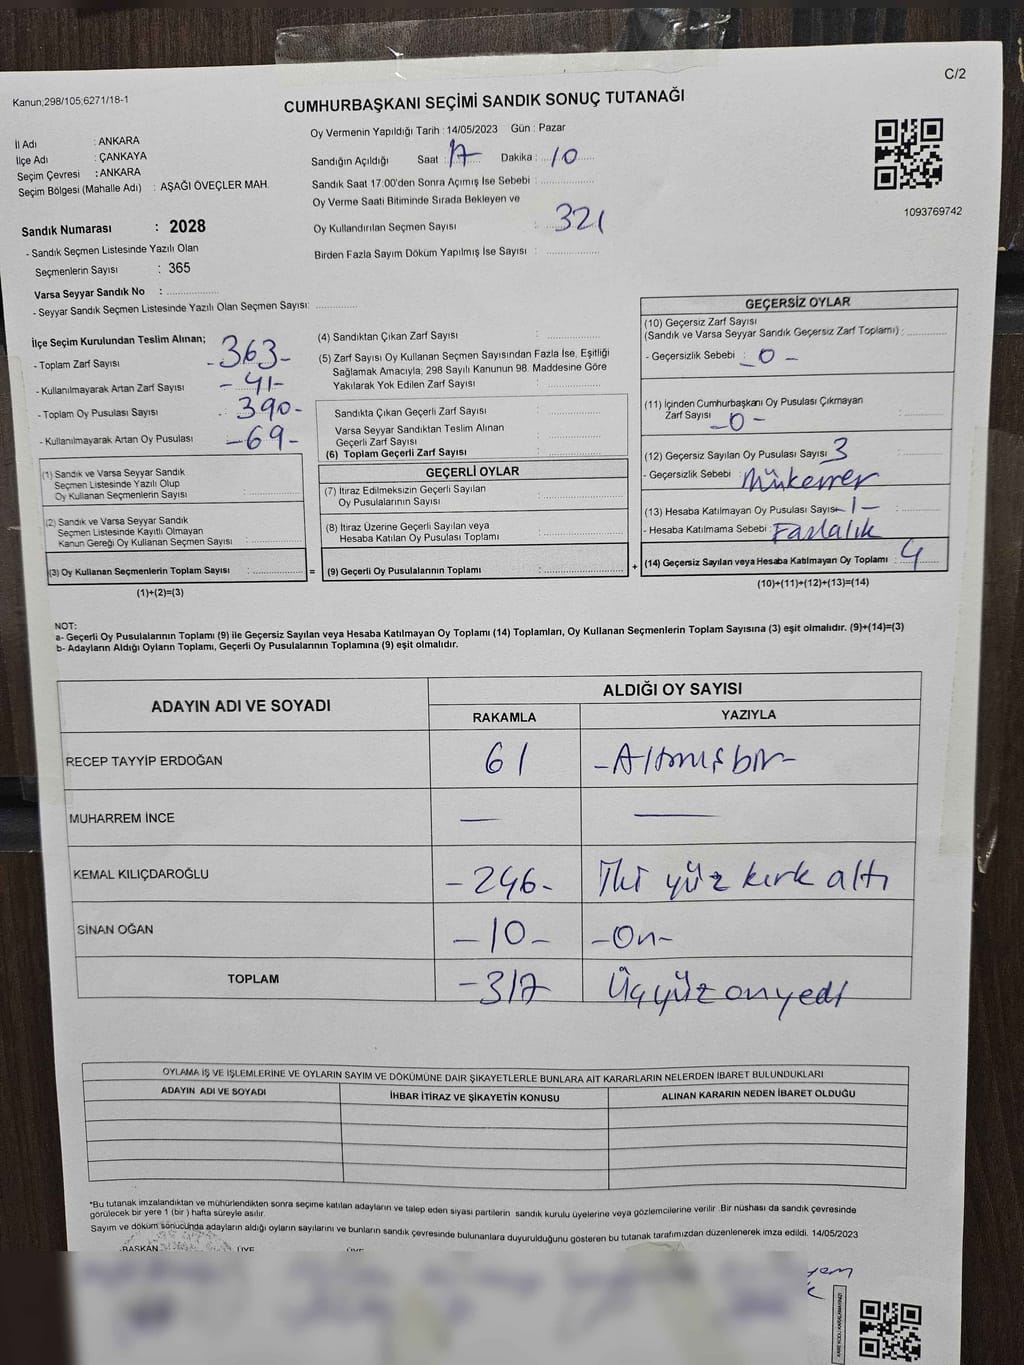 C/2
Kanun;298/105;6271/18-1
CUMHURBAŞKANI SEÇİMİ SANDIK SONUÇ TUTANAĞI
İl Adı : ANKARA
İlçe Adı : ÇANKAYA
Seçim Çevresi : ANKARA
Seçim Bölgesi (Mahalle Adı) : AŞAĞI ÖVEÇLER MAH.
Sandık Numarası : 2028
- Sandık Seçmen Listesinde Yazılı Olan
Seçmenlerin Sayısı : 365
Varsa Seyyar Sandık No : ..................
- Seyyar Sandık Seçmen Listesinde Yazılı Olan Seçmen Sayısı: ..............
Oy Vermenin Yapıldığı Tarih : 14/05/2023 Gün : Pazar
Sandığın Açıldığı Saat : 17 Dakika : 10
Sandık Saat 17.00'den Sonra Açımış İse Sebebi : ..................
Oy Verme Saati Bitiminde Sırada Bekleyen ve
Oy Kullandırılan Seçmen Sayısı : 321
Birden Fazla Sayım Döküm Yapılmış İse Sayısı : ..................
1093769742
İlçe Seçim Kurulundan Teslim Alınan;
- Toplam Zarf Sayısı - 363-
- Kullanılmayarak Artan Zarf Sayısı - 41-
- Toplam Oy Pusulası Sayısı : 390-
- Kullanılmayarak Artan Oy Pusulası - 69-
(1) Sandık ve Varsa Seyyar Sandık
Seçmen Listesinde Yazılı Olup
Oy Kullanan Seçmenlerin Sayısı : ..................
(2) Sandık ve Varsa Seyyar Sandık
Seçmen Listesinde Kayıtlı Olmayan
Kanun Gereği Oy Kullanan Seçmen Sayısı : ..................
(3) Oy Kullanan Seçmenlerin Toplam Sayısı : ..................
(1)+(2)=(3)
(4) Sandıktan Çıkan Zarf Sayısı : ..................
(5) Zarf Sayısı Oy Kullanan Seçmen Sayısından Fazla İse, Eşitliği
Sağlamak Amacıyla, 298 Sayılı Kanunun 98. Maddesine Göre
Yakılarak Yok Edilen Zarf Sayısı : ..................
Sandıkta Çıkan Geçerli Zarf Sayısı : ..................
Varsa Seyyar Sandıktan Teslim Alınan
Geçerli Zarf Sayısı : ..................
(6) Toplam Geçerli Zarf Sayısı : ..................
GEÇERLİ OYLAR
(7) İtiraz Edilmeksizin Geçerli Sayılan
Oy Pusulalarının Sayısı : ..................
(8) İtiraz Üzerine Geçerli Sayılan veya
Hesaba Katılan Oy Pusulası Toplamı : ..................
= (9) Geçerli Oy Pusulalarının Toplamı : ..................
GEÇERSİZ OYLAR
(10) Geçersiz Zarf Sayısı
(Sandık ve Varsa Seyyar Sandık Geçersiz Zarf Toplamı) : ............
- Geçersizlik Sebebi : - 0 -
(11) İçinden Cumhurbaşkanı Oy Pusulası Çıkmayan
Zarf Sayısı -0- : ............
(12) Geçersiz Sayılan Oy Pusulası Sayısı 3 : ............
- Geçersizlik Sebebi : Mükerrer
(13) Hesaba Katılmayan Oy Pusulası Sayısı -1- : ............
- Hesaba Katılmama Sebebi : Fazlalık
+ (14) Geçersiz Sayılan veya Hesaba Katılmayan Oy Toplamı : 4
(10)+(11)+(12)+(13)=(14)
NOT:
a- Geçerli Oy Pusulalarının Toplamı (9) ile Geçersiz Sayılan veya Hesaba Katılmayan Oy Toplamı (14) Toplamları, Oy Kullanan Seçmenlerin Toplam Sayısına (3) eşit olmalıdır. (9)+(14)=(3)
b- Adayların Aldığı Oyların Toplamı, Geçerli Oy Pusulalarının Toplamına (9) eşit olmalıdır.
ADAYIN ADI VE SOYADI ALDIĞI OY SAYISI
RAKAMLA YAZIYLA
RECEP TAYYİP ERDOĞAN 61 -Altmış bir-
MUHARREM İNCE — —
KEMAL KILIÇDAROĞLU - 246- İki yüz kırk altı
SİNAN OĞAN -10- -On-
TOPLAM -317 Üçyüz onyedi
OYLAMA İŞ VE İŞLEMLERİNE VE OYLARIN SAYIM VE DÖKÜMÜNE DAİR ŞİKAYETLERLE BUNLARA AİT KARARLARIN NELERDEN İBARET BULUNDUKLARI
ADAYIN ADI VE SOYADI İHBAR İTİRAZ VE ŞİKAYETİN KONUSU ALINAN KARARIN NEDEN İBARET OLDUĞU
*Bu tutanak imzalandıktan ve mühürlendikten sonra seçime katılan adayların ve talep eden siyasi partilerin sandık kurulu üyelerine veya gözlemcilerine verilir .Bir nüshası da sandık çevresinde
görülecek bir yere 1 (bir ) hafta süreyle asılır.
Sayım ve döküm sonucunda adayların aldığı oyların sayılarını ve bunların sandık çevresinde bulunanlara duyurulduğunu gösteren bu tutanak tarafımızdan düzenlenerek imza edildi. 14/05/2023
BAŞKAN ÜYE ÜYE